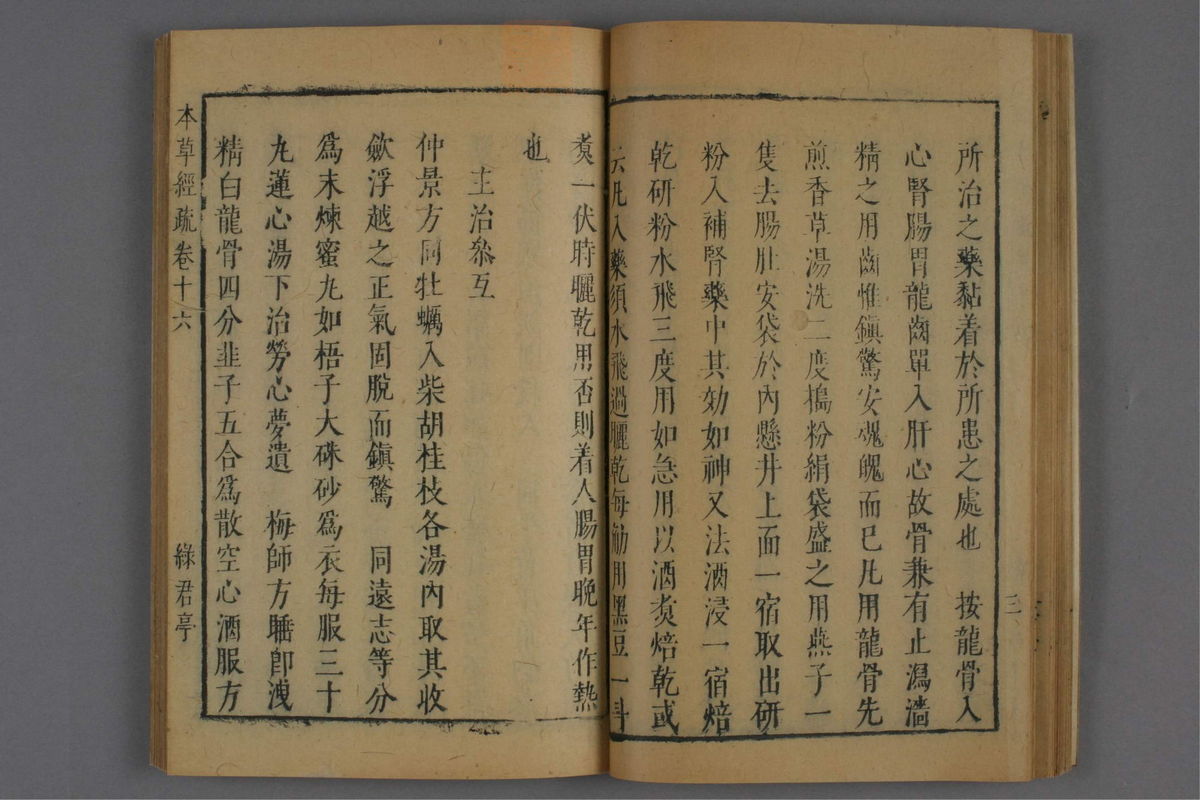 所治之藥黏着於所患之處也　按龍骨入
心腎腸胃龍齒單入肝心故骨兼有止瀉濇
精之用齒惟鎮驚安魂魄而已凡用龍骨先
煎香草湯洗二度搗粉絹袋盛之用燕子一
隻去腸肚安袋於內懸井上面一宿取出研
粉入補腎藥中其効如神又法酒浸一宿焙
乾研粉水飛三度用如急用以酒煑焙乾或
云凡入藥須水飛過曬乾每觔用黑豆一斗
煑一伏時曬乾用否則着人腸胃晚年作熱
也
主治叅互
仲景方同牡蠣入柴胡桂枝各湯內取其收
歛浮越之正氣固脫而鎮驚　同遠志等分
爲末煉蜜丸如梧子大硃砂爲衣每服三十
丸蓮心湯下治勞心夢遺　梅師方睡卽洩
精白龍骨四分韭子五合爲散空心酒服方
本草經疏卷十六　綠君亭